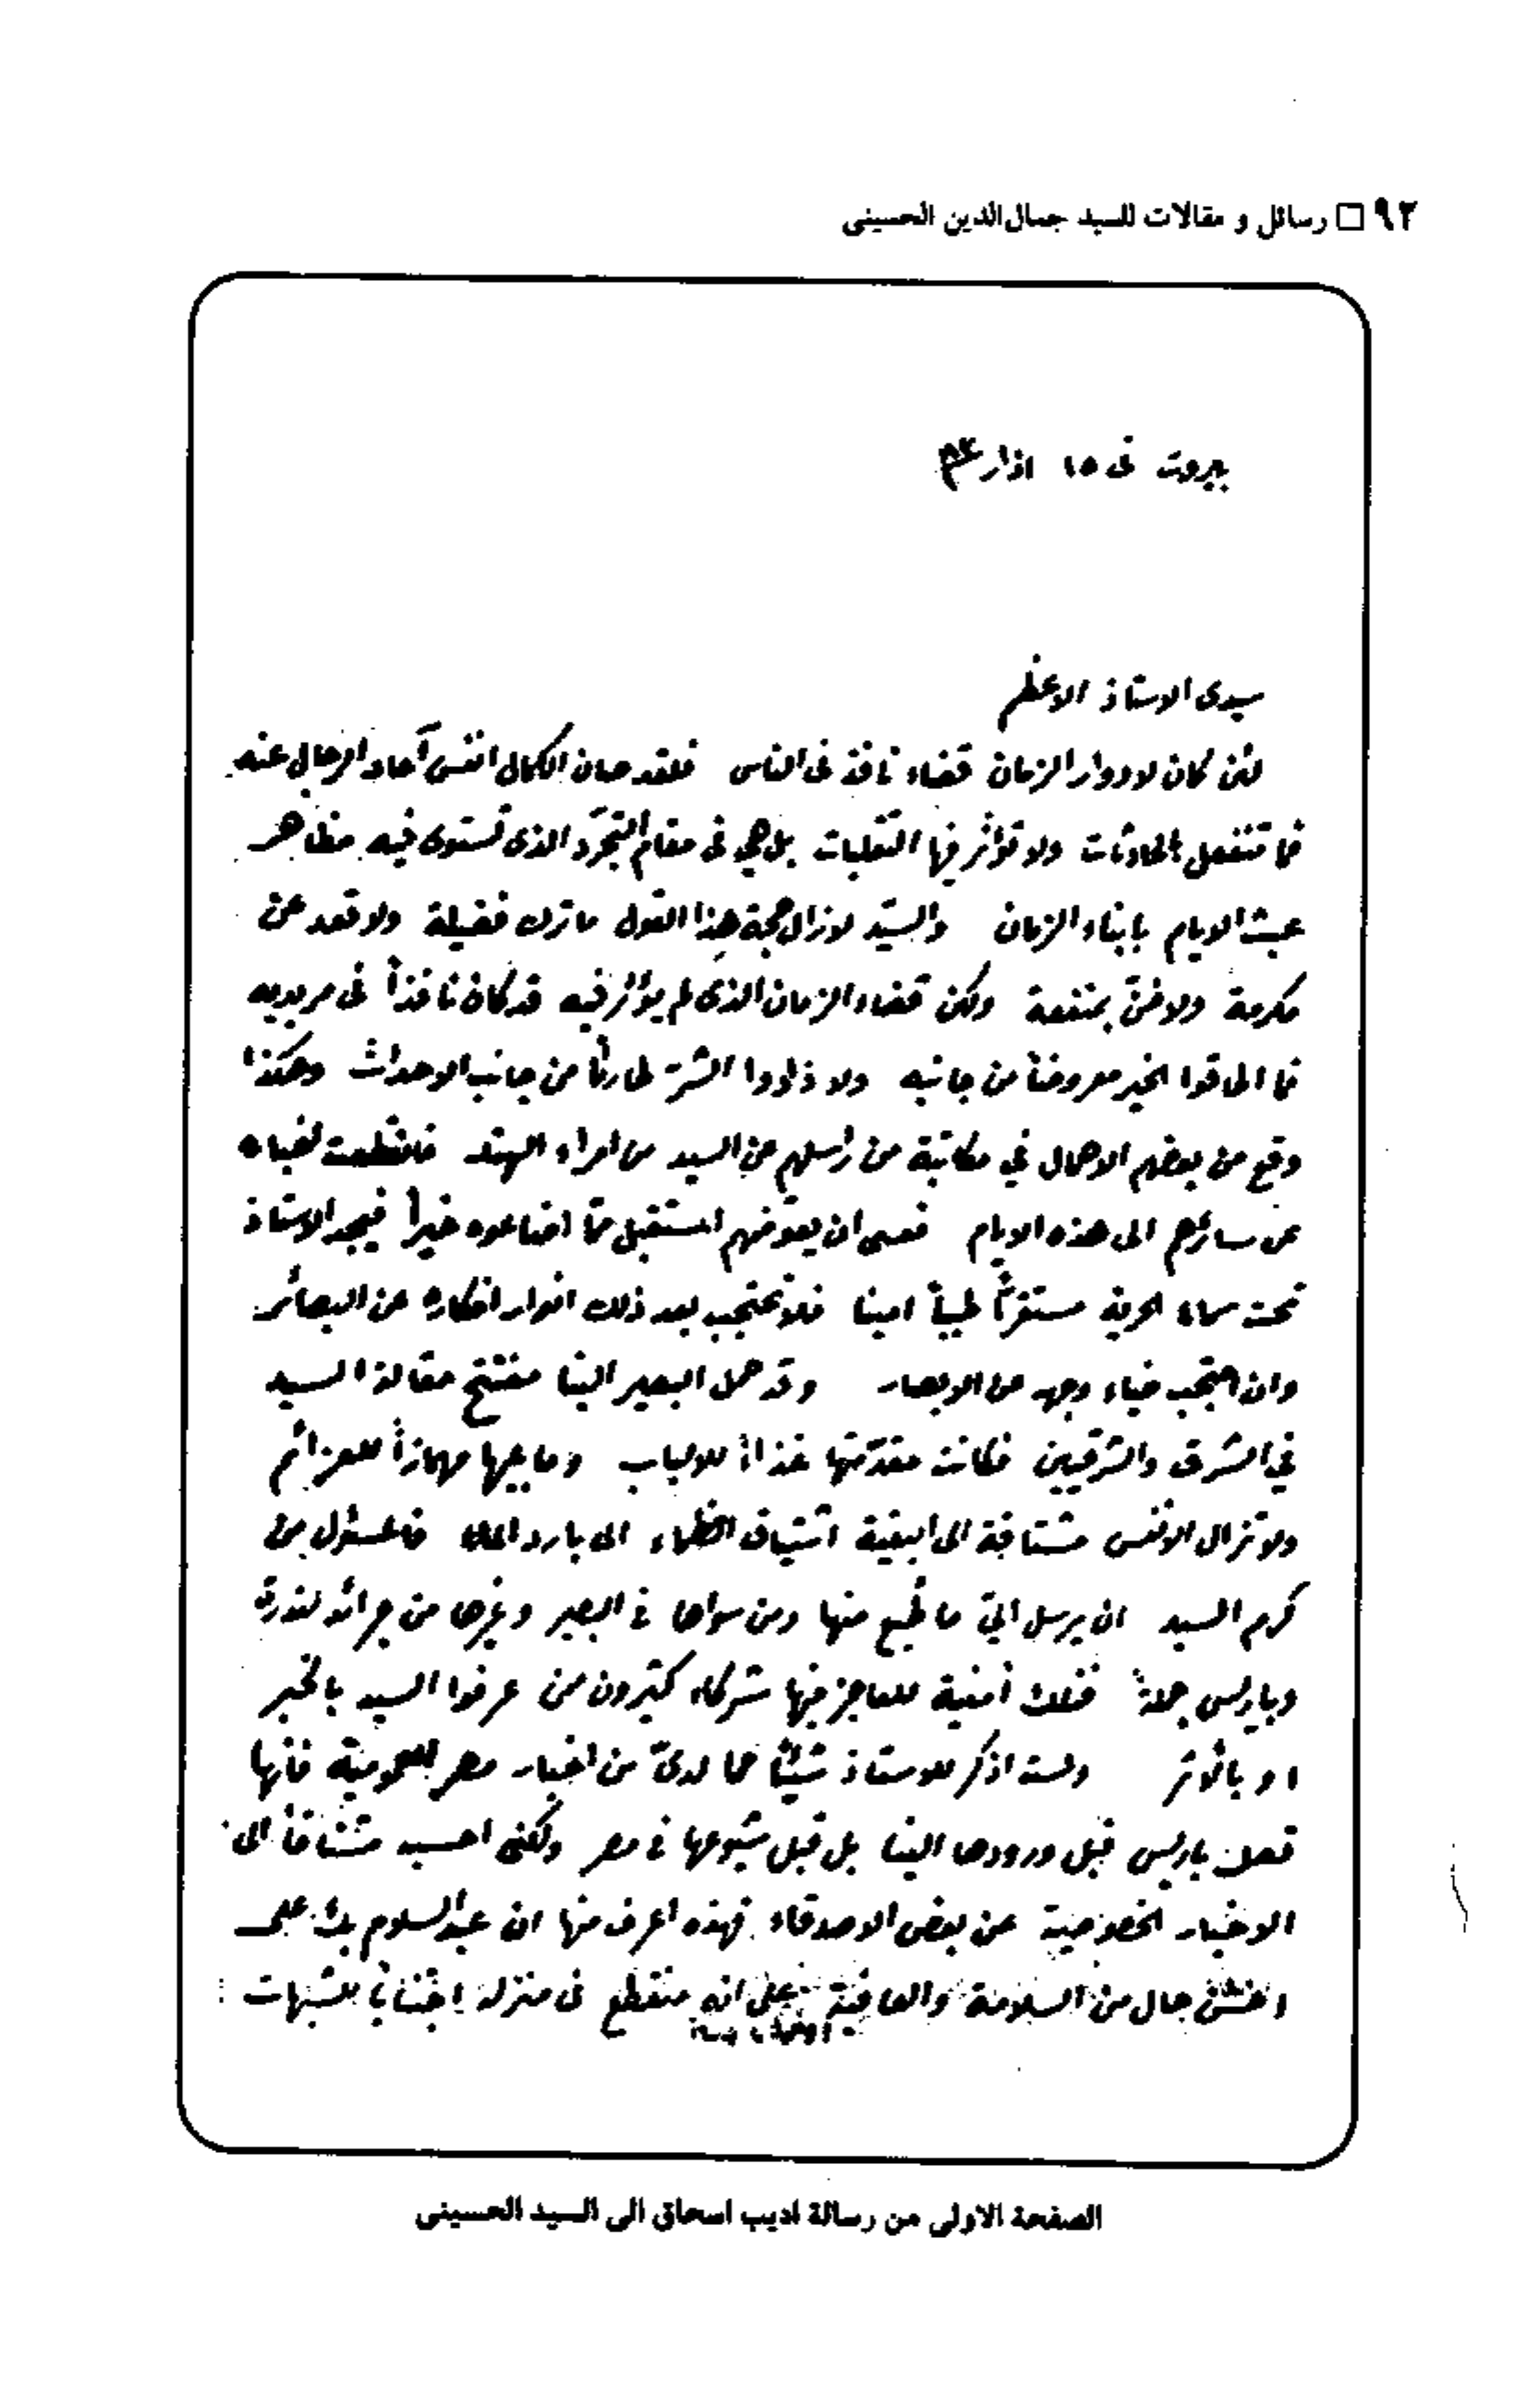 ٩٢ □ رسائل و مقالات للسيد جمال‌الدين الحسينى
بيروت فى ١٥ اذار
سيدى الاستاذ الاعظم
لئن كان لادوار الزمان قضاء نافذ فى الناس فلقد صان الكمال انفس آحاد الرجال عنه
فما تنفعل بالحادثات ولا تؤثر فيها التقلبات بل هى فى مقام التجرّد الذى تستوى فيه مظاهر
عبث الايام بابناء الزمان والسيّد لازال حجة هذا القول ما ترك فضيلة ولا قعد عن
مكرمة ولا ضنّ بمنفعة ولكن قضاء الزمان الذى لم يؤثر فيه قد كان نافذاً فى مريديه
فما اطاقوا الخير معروضاً من جانبه ولا ذادوا الشرّ طارئاً من جانب الاحداث وهكذا
وقع من بعضهم الاهمال في مكاتبة من راسلهم عن السيد من امراء الهند فانقطعت انباه
عن سائرهم الى هذه الايام فعسى ان يعوّضهم المستقبل ممّا اضاعوه خيراً فيجد الاستاذ
تحت سماء الحرية مستقرّاً طيباً امينا فلا تحتجب بعد ذلك انوار افكاره عن البصائر
وان احتجب ضياء وجهه عن الابصار وقد حمل البصير الينا مفتتح مقالة السيد
في الشرق والشرقيين فكانت مقدّمتها غذاءً للالباب وما يليها مهمازاً للعزائم
ولا تزال الانفس مشتاقة الى البقية اشتياق الظماء الى بارد الماء فالمسئول من
كرم السيد ان يرسل اليّ ما طبع منها ومن سواها فى البصير وغيرها من جرائد لندرة
وباريس جملةً فتلك امنية للعاجز فيها شركاء كثيرون ممن عرفوا السيد بالخبر
او بالاثر ولست اذكر للاستاذ شيئاً مما لدىّ من اخبار مصر العمومية فانها
تصل باريس قبل ورودها الينا بل قبل شيوعها فى مصر ولكنى احسبه مشتاقاً الى
الاخبار الخصوصية عن بعض الاصدقاء فهذه اعرف منها ان عبد السلام بك على
احسن حال من السلامة والعافية على انه منقطع فى منزله اجتناباً للشبهات
الصفحة الاولى من رسالة اديب اسحاق الى السيد الحسينى